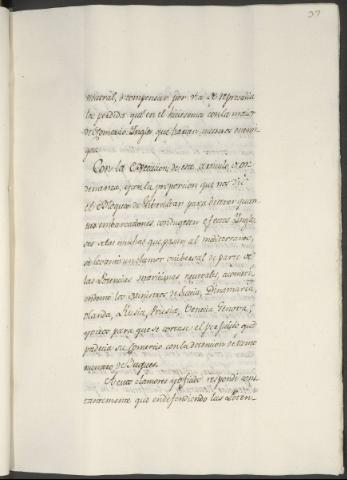 37
neutral, ò compensar por via de represalia
las perdidas que en el huviesemos con la mar
de Comercio Ingles que hacian nuestros enemi-
gos.
Con la Execucion de este articulo, ù or-
denanza, y con la proporcion que nos dio
el Bloqueo de Gibraltar para detener quan-
tas embarcaciones condugesen efectos Ingle-
ses entre muchas que pasan al mediterraneo,
se levantò un clamor universal de parte de
las Potencias maritimas neutrales, acometi-
endome los Ministros de Suecia, Dinamarca,
olanda, Rusia, Prusia, Venecia, Genova,
y otros para que se cortase el perjuicio que
padecia su Comercio con la detencion de tanto
numero de Buques.
A estos clamores y oficios respondi cons-
tantemente que en defendiendo las Poten-